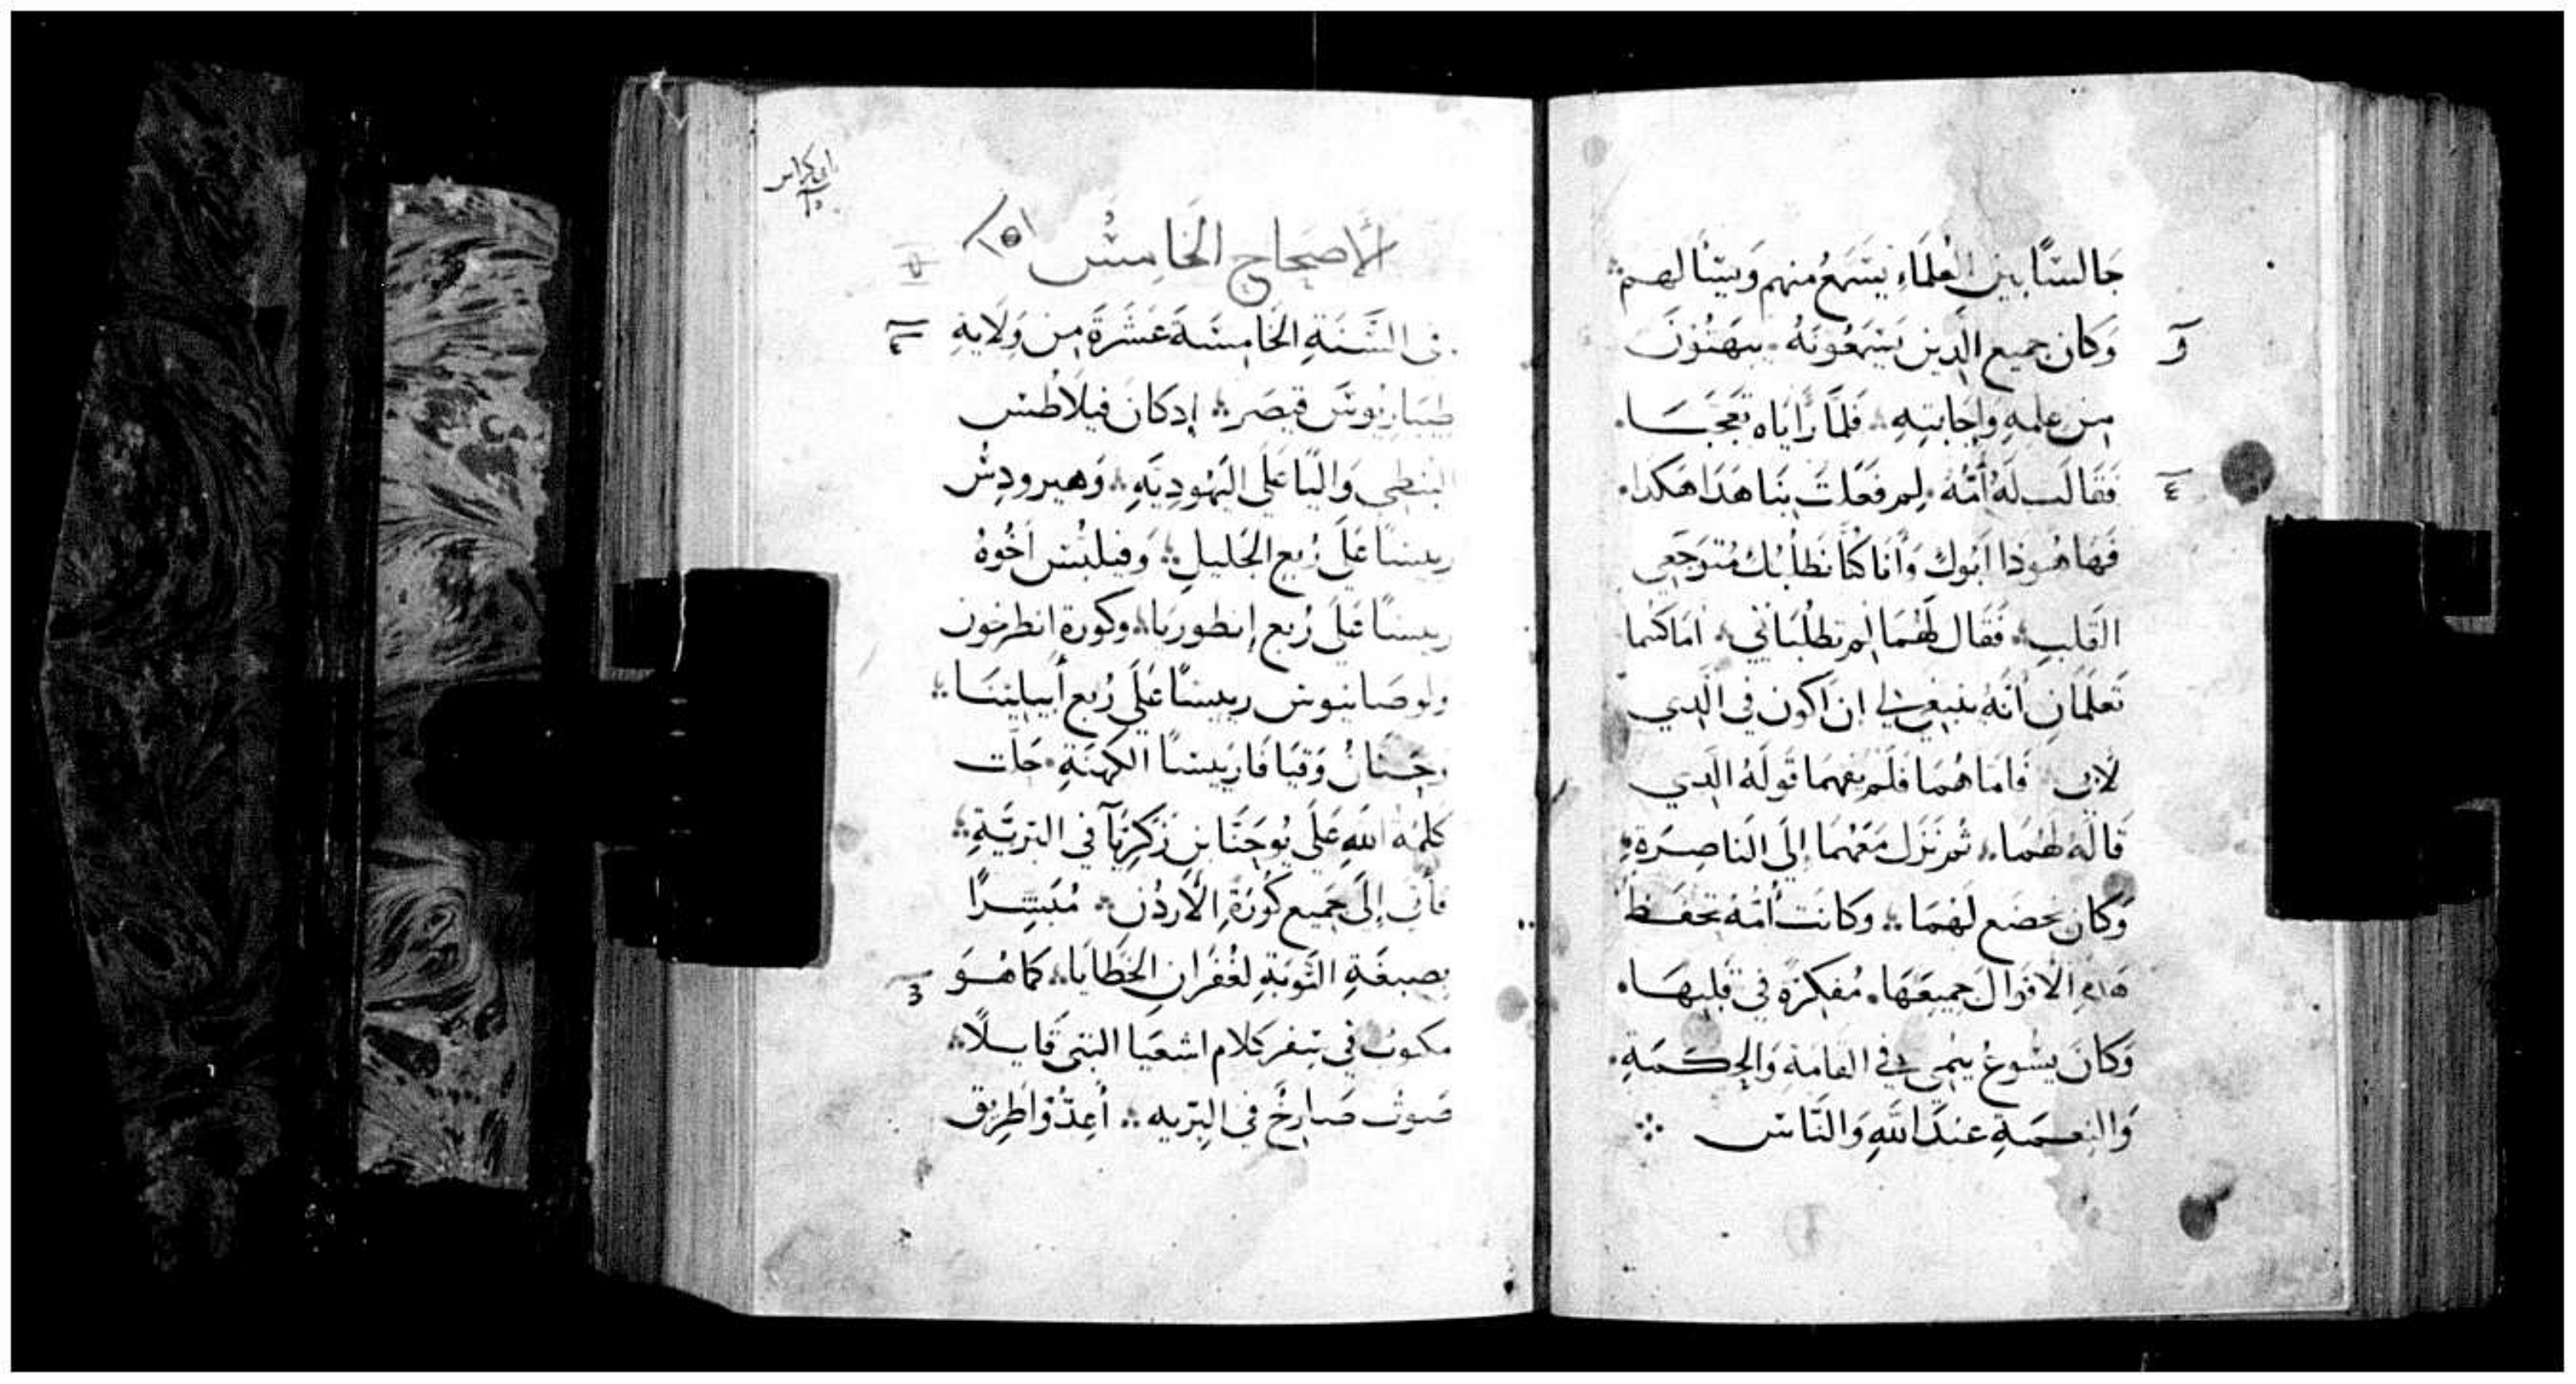 جَالسًا بين العُلَمَاءِ يَسْمَعُ منهم وَيسْأَلهم
وَكَان جميع الَّدِين يَسْمَعُونَهُ يبهَتُونَ
مِن عِلمِهِ وَاجَابتِهِ فَلَمَّا رَأَيَاه تَعَجَّبَا
فَقَالَت لَهُ أُمُّهُ لِم فَعَلتَ بِنَا هَدَا هَكَدا
فَهَا هُوَذا أَبُوك وَأَنَا كُنَّا نَطلُبُك مُتَوَجِّعِي
القَلبِ فَقَال لَهُمَا لِم تَطلُبَانِي أمَا كُنتما
تَعلَمَانِ أَنَّهُ يَنبغِي لي ان أكون في الَّدِي
لأبي فَامَا هُمَا فَلَم يفهَمَا قَولَهُ الَّدِي
قَالَهُ لَهُمَا ثُم نَزَل مَعَهُمَا إِلَى النَاصِرَةِ
وَكَان يخضَع لَهُمَا وَكَانَت أُمُّهُ تَحفَظ
هَدِهِ الأقوَال جَمِيعَهَا مُفَكِرَةً في قَلبِهَا
وَكَانَ يَسُوعُ يَنمِي في القَامَةِ وَالحِكمَةِ
وَالنِعمَةِ عِندَ اللهِ وَالنَّاسِ
الأصحاح الخَامِسُ ٥
في السَّنَةِ الخَامِسَةَ عَشَرَةَ مِن وَلَايَةِ
طِيبَاريُوسَ قَيصَر إد كَانَ فيلَاطُس
البنطِي وَاليًا عَلَى اليَهُودِيَّةِ وَهيرودِسُ
رييسًا عَلَى رُبع الجَليل وَفيلبُس أخُوهُ
رييسًا عَلَى رُبع إيطوريَا وكورة انطرخون
ولوصانيوس رييسًا عَلَى رُبع أبيلينَا
وحَنَانُ وَقيَافَا رَييسَا الكهنَةِ حَلَّت
كَلمَة اللهِ عَلَى يُوحَنَّا بن زَكَرِيَّآ في البَرِّيَّةِ
فأتى إلَى جَمِيع كُورَةِ الأردُن مُبَشِّرًا
بصبغَةِ التَّوبَةِ لغُفرَانِ الخَطَايَا كمَا هُوَ
مكتوبٌ في سِفر كَلام اشعيَا النبي قَايلًا
صَوتُ صَارِخٌ في البَرِّيه أَعِدُّوا طَرِيق